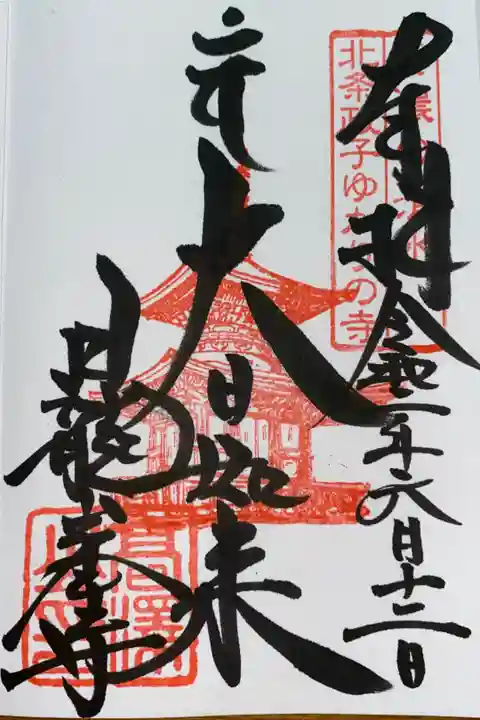 奉拝 令和二年六月十二日
北条政子ゆかりの寺
大日如来
日龍峯寺